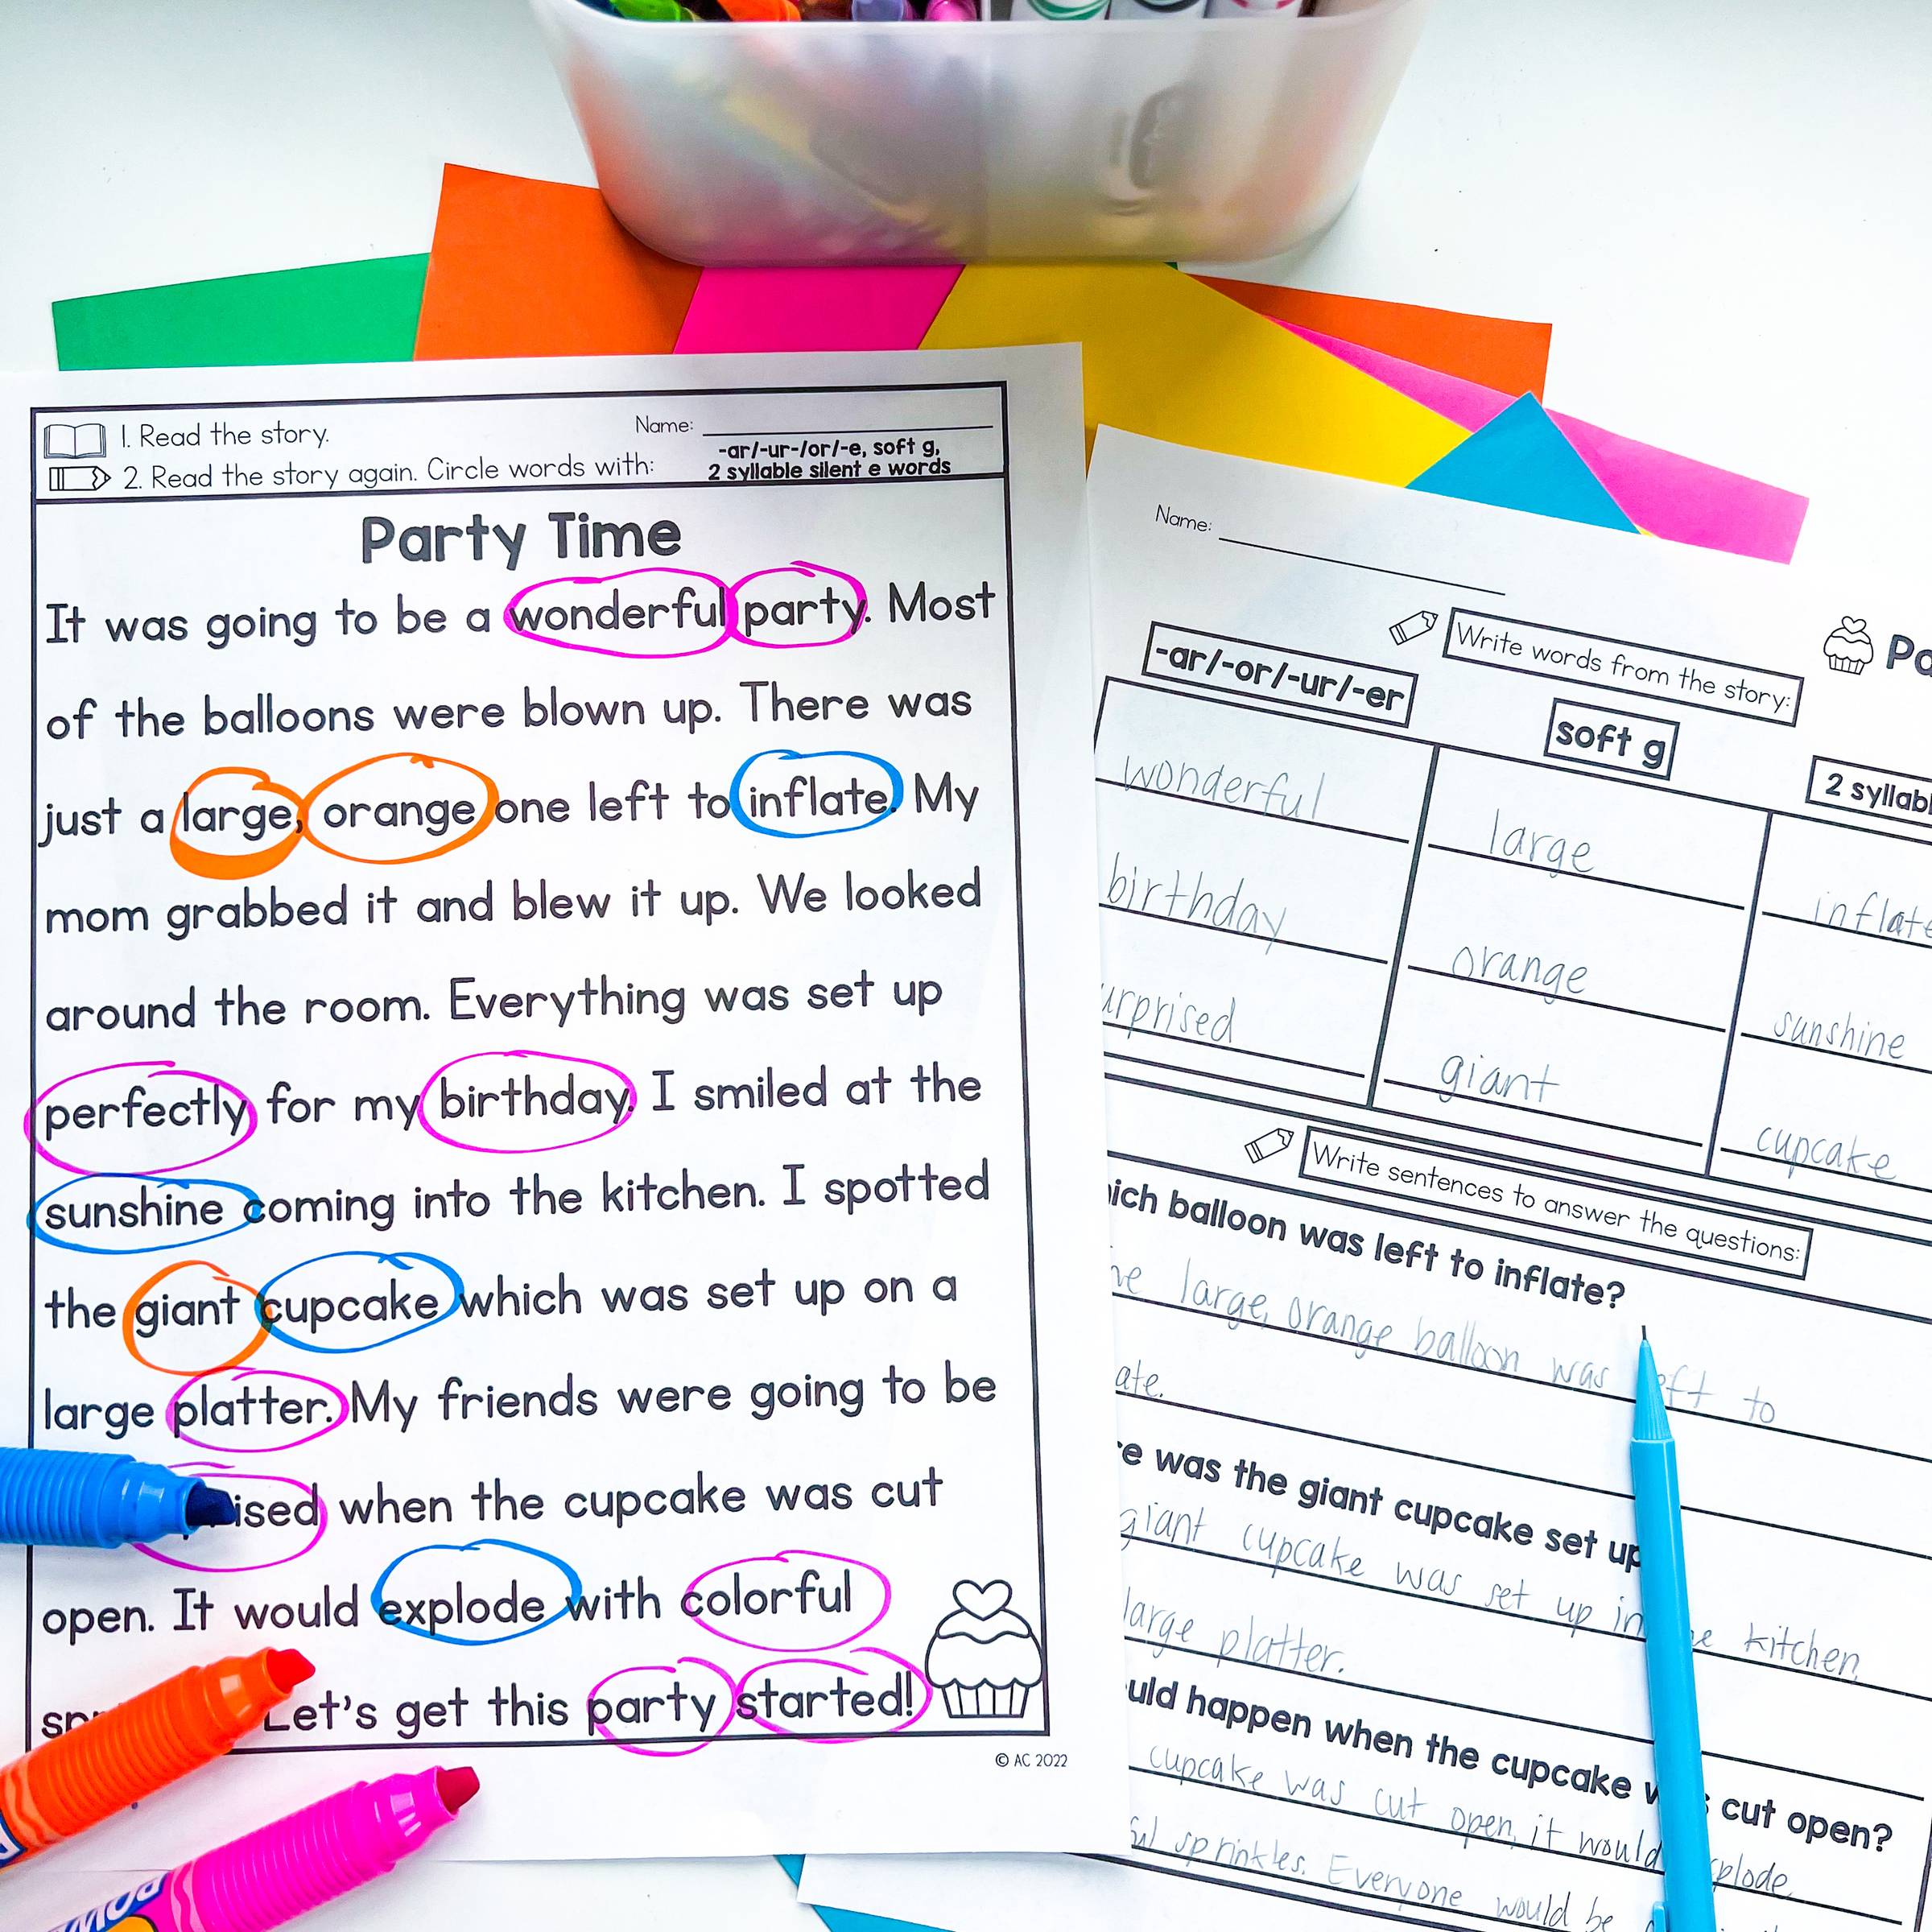 1. Read the story.
Name:
2. Read the story again. Circle words with:
-ar/-ur-/or/-e, soft g,
2 syllable silent e words
Party Time
It was going to be a wonderful party. Most
of the balloons were blown up. There was
just a large, orange one left to inflate. My
mom grabbed it and blew it up. We looked
around the room. Everything was set up
perfectly for my birthday. I smiled at the
sunshine coming into the kitchen. I spotted
the giant cupcake which was set up on a
large platter. My friends were going to be
ised when the cupcake was cut
open. It would explode with colorful
Let's get this party started!
© AC 2022
Name:
Write words from the story:
-ar/-or/-ur/-er
soft g
2 syllab
wonderful
large
inflate
birthday
orange
sunshine
urprised
giant
cupcake
Write sentences to answer the questions:
ich balloon was left to inflate?
he large, orange balloon was left to
ate.
re was the giant cupcake set up
giant cupcake was set up in kitchen
large platter.
uld happen when the cupcake cut open?
cupcake was cut open, it would plode
ful sprinkles. Everyone would be